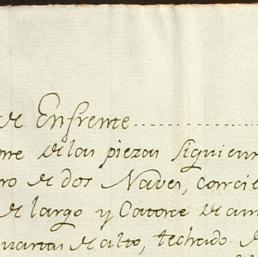 de Enfrente..............
me de las piezas siguien
ro de dos Naves, con cie
de largo y Catorce de an
quartas de alto, techado